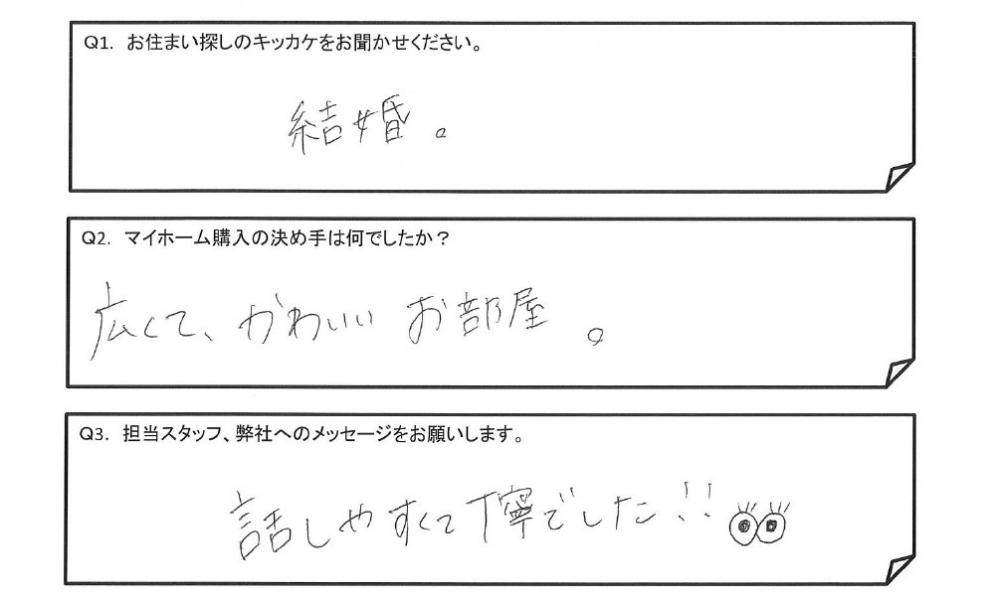 Q1. お住まい探しのキッカケをお聞かせください。
結婚。
Q2. マイホーム購入の決め手は何でしたか？
広くて、かわいい お部屋。
Q3. 担当スタッフ、弊社へのメッセージをお願いします。
話しやすくて丁寧でした!!